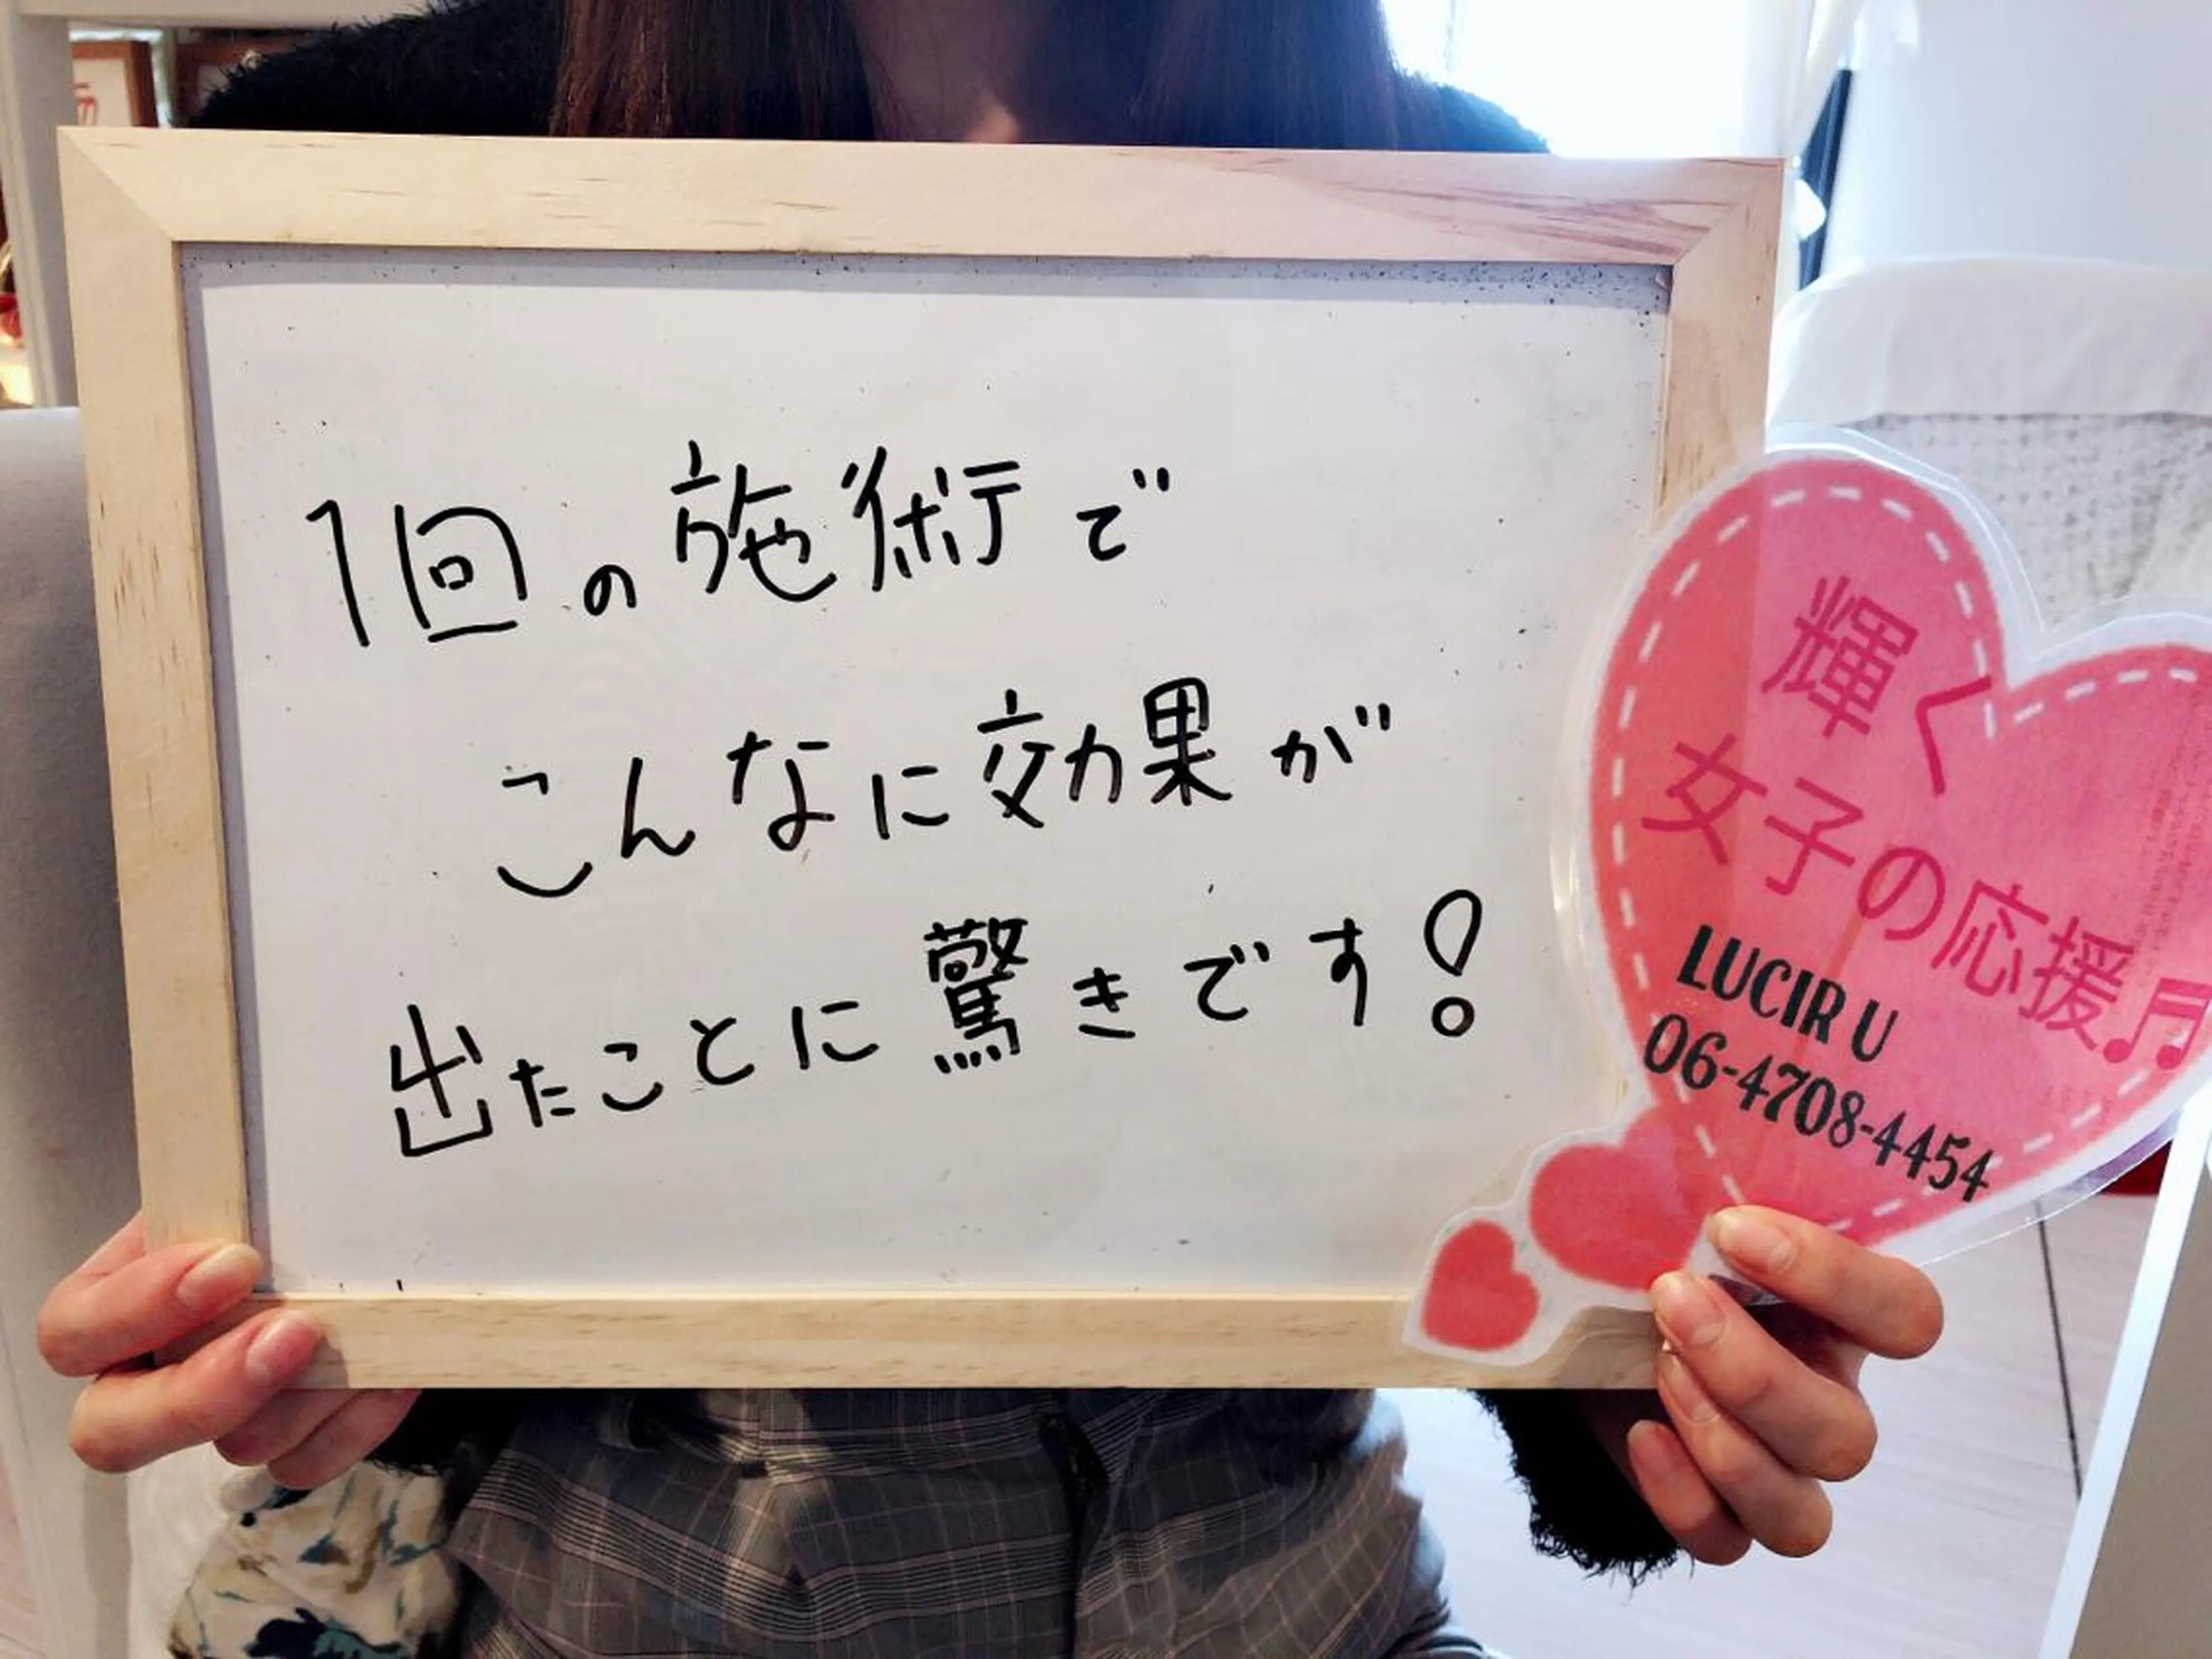 1回の施術で
こんなに効果が
出たことに驚きです!
輝く
女子の応援♬
LUCIR U
06-4708-4454